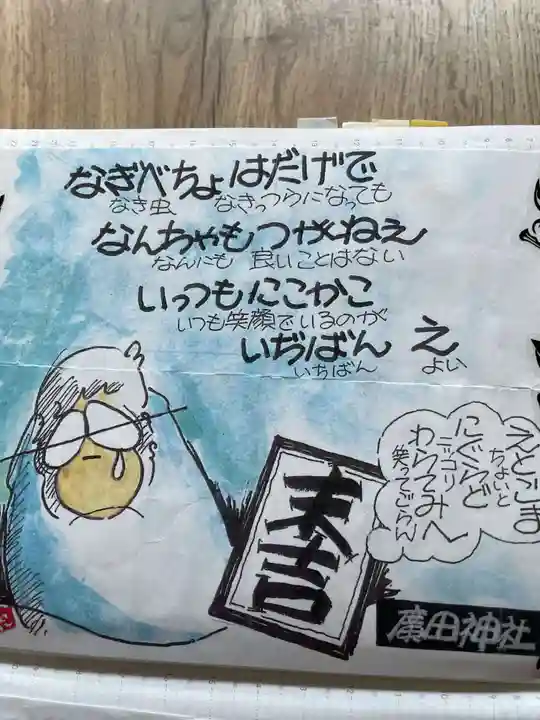 なぎべちょはだげで
なき虫 なきっつらになっても
なんちゃもつがいねえ
なんにも 良いことはない
いっつもにこかこ
いつも笑顔でいるのが
いぢばん え
いちばん よい
えとごま
ちょいと
にぐらど
ニッコリ
わらてみへ
笑ってごらん
末吉
廣田神社